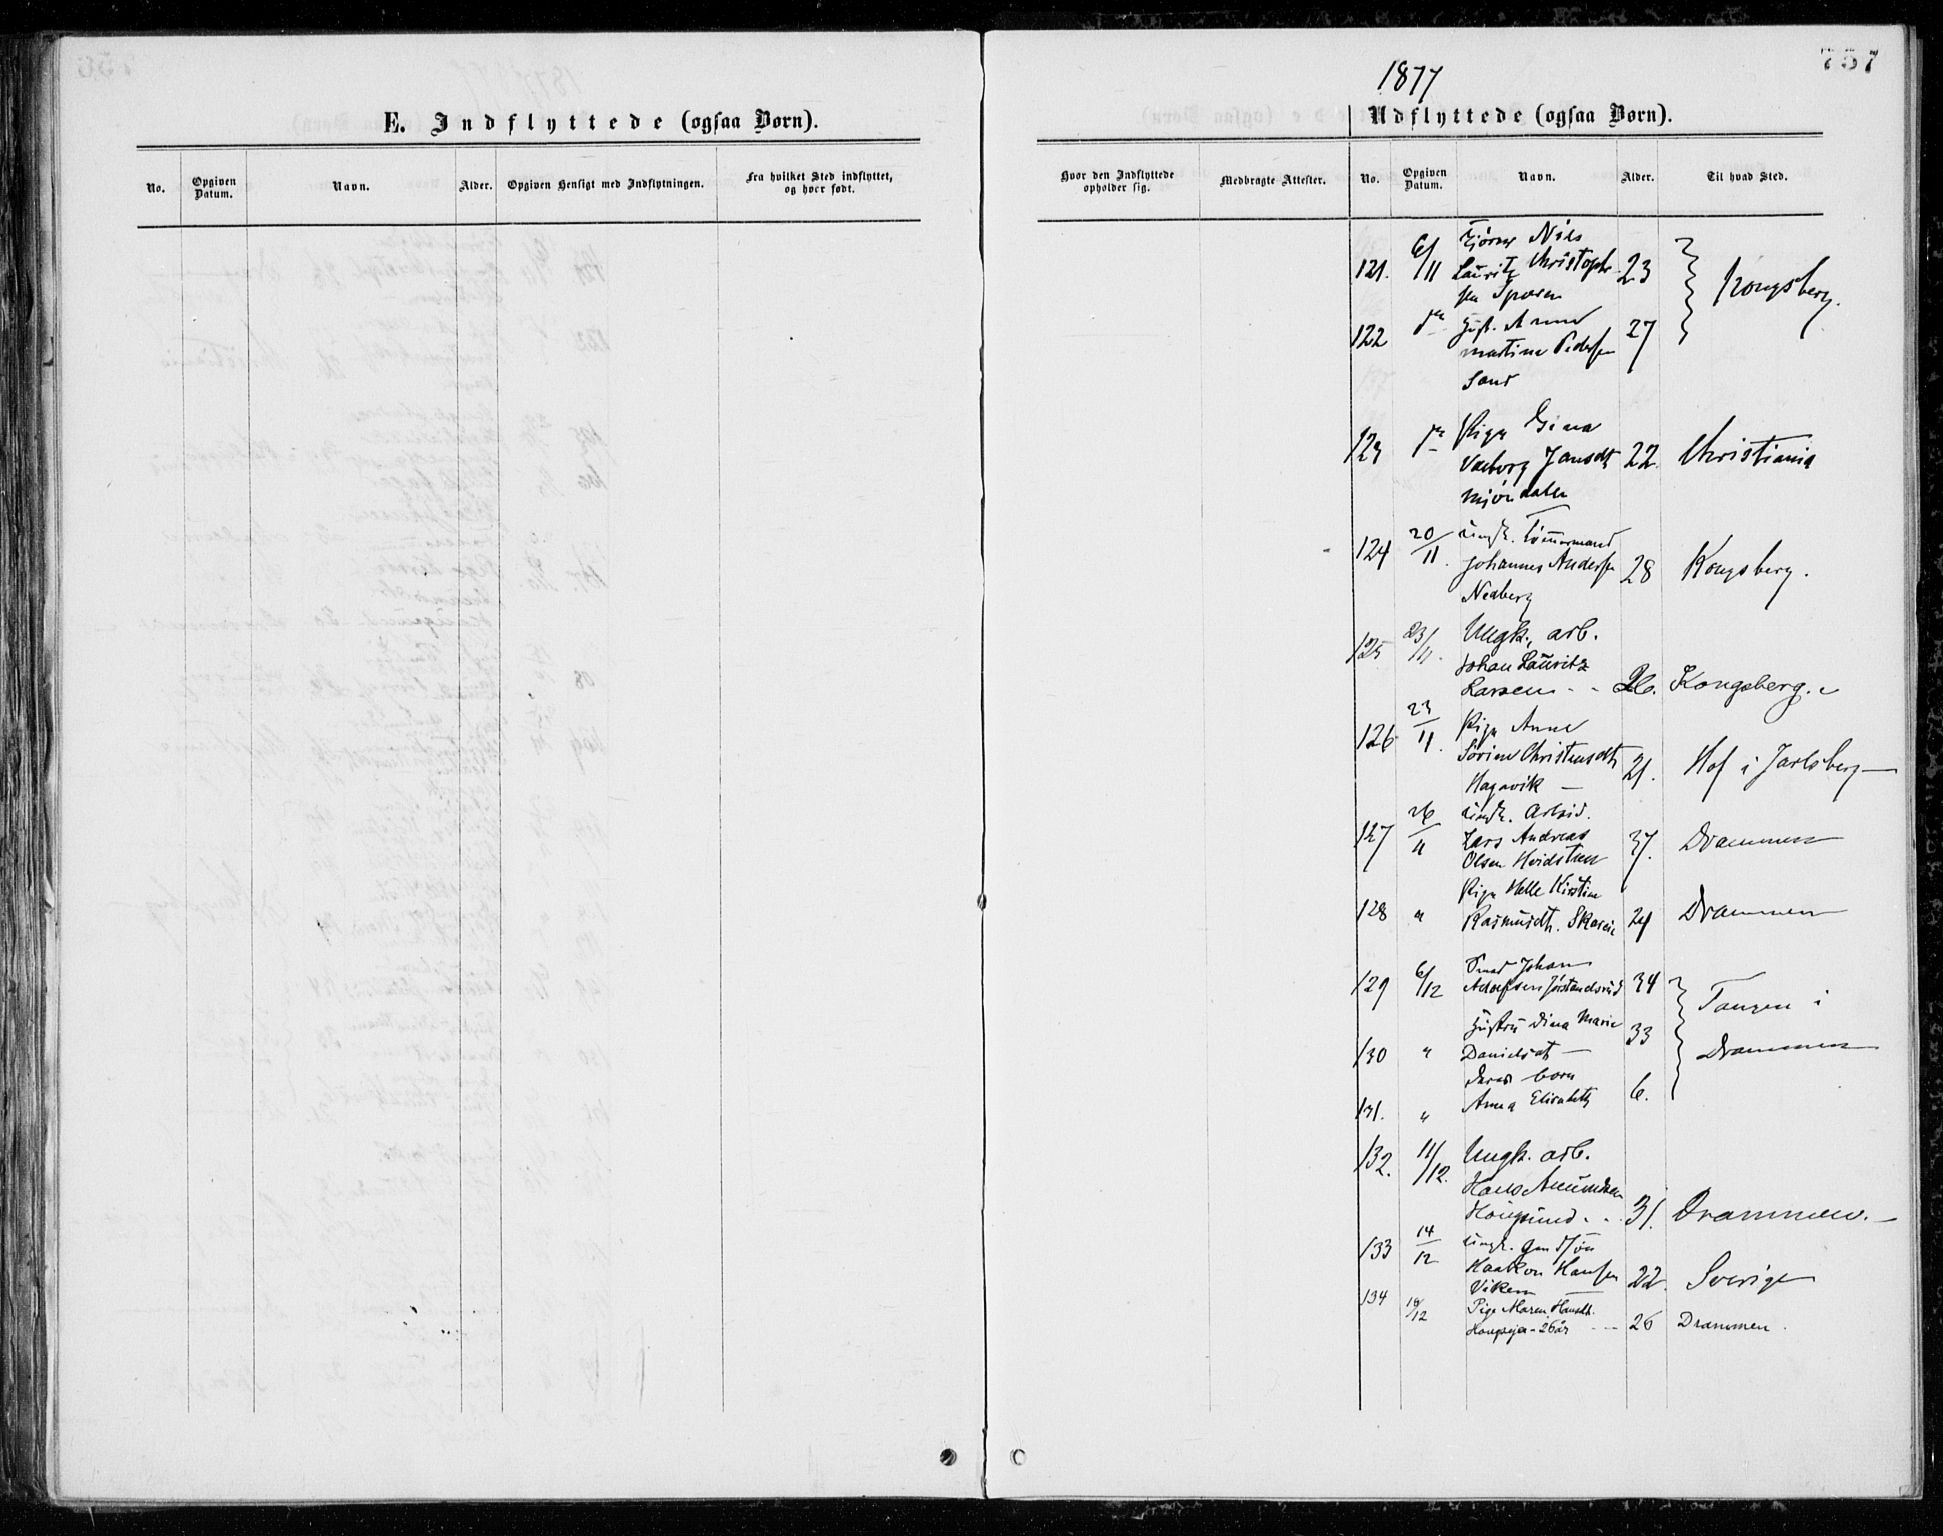 E. Indflyttede (ogsaa Børn).
No. Opgiven Datum. Navn. Alder. Opgiven Hensigt med Indflytningen. Fra hvilket Sted indflyttet, og hvor født.
757
1877
Udflyttede (ogsaa Børn).
Hvor den Indflyttede opholder sig. Medbragte Attester. No. Opgiven Datum. Navn. Alder. Til hvad Sted.
Nils
121. 6/11 Lauritz Christoph- 23 Kongsberg.
sen
122 Anne 27
Martine Pedersen
Sand
123 Pige Gina
Valborg Jansdt 22. Christiania
Mjøndalen
124 20/11. Ungk. Tømmermand
Johannes Andersen 28 Kongsberg.
Nedberg
125 23/11. Ungk. arb.
Johan Lauritz
Larsen - - 26. Kongsberg.
126 23/11. Pige Anne
Christensdt 21. Hof i Jarlsberg
Hagavik —
127 26/11 Ungk. Arbeid.
Lars Andreas 37. Drammen
Olsen Hvidsteen
128 " Pige Helle Kirstine
Rasmusdt. 24 Drammen
129 6/12 Johan
34 Tangen i
130 " Hustru Dina Marie 33 Drammen
Danielsdt —
deres børn
131. " Anna Elisabeth 6.
132. 11/12. Ungk. arb.
Hans Amundsen
Hougsund. - . 31. Drammen. —
133 14/12 Ungk.
Haakon Hansen 22. Sverige
Viken
134 18/12 Pige Maren Hansdt.
- 26 år - - 26 Drammen.